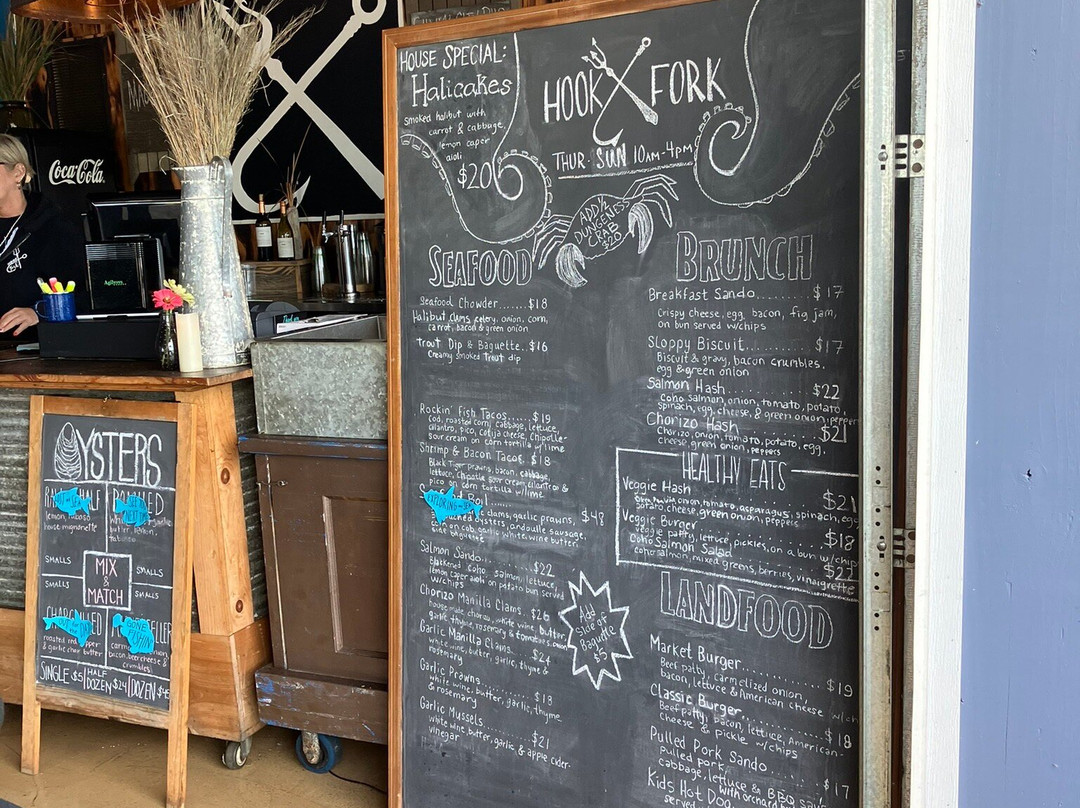 HOUSE SPECIAL:
Halicakes
smoked halibut with
carrot & cabbage,
lemon caper
aioli
$20
HOOK FORK
THUR - SUN 10AM-4PM
ADD ½
DUNGENESS
CRAB
$20
SEAFOOD
Seafood Chowder.......$18
Halibut, clams, celery, onion, corn,
carrot, bacon & green onion
Trout Dip & Baguette. $16
Creamy smoked trout dip
Rockin' Fish Tacos......$19
Cod, roasted corn, cabbage, lettuce,
cilantro, pico, cotija cheese, chipotle-
sour cream on corn tortilla w/lime
Shrimp & Bacon Tacos. $18
Black Tiger prawns, bacon, cabbage,
lettuce, chipotle sour cream, cilantro &
pico on corn tortilla w/lime
EXPLORING THE SEA
Boil
clams, garlic prawns,
oysters, andouille sausage,
corn on cob, garlic white wine butter,
baguette
$48
Salmon Sando..
$22
Blackened coho salmon, lettuce,
lemon caper aioli on potato bun served
w/chips
Chorizo Manilla Clams. $26
house made chorizo, white wine, butter,
garlic, thyme, rosemary & tomatoes
Garlic Manilla Clams....$24
white wine, butter, garlic, thyme &
rosemary
Garlic Prawns
$18
white wine, butter, garlic, thyme
& rosemary
Garlic Mussels......
$21
white wine butter, garlic, & apple cider
vinegar
Add
Side of
Baguette
$5
BRUNCH
Breakfast Sando.........$17
Crispy cheese, egg, bacon, fig jam,
on bun served w/chips
Sloppy Biscuit..........$17
Biscuit & gravy, bacon crumbles,
egg & green onion
Salmon Hash............$22
Coho salmon, onion, tomato, potato,
spinach, egg, cheese, & green onion, peppers
Chorizo Hash..........$21
Chorizo, onion, tomato, potato, egg,
cheese, green onion, peppers
HEALTHY EATS
Veggie Hash
$21
onion, tomato, asparagus, spinach, egg
potato, cheese, green onion, peppers
Veggie Burger
$18
veggie patty, lettuce, pickles, on a bun w/chips
Coho Salmon Salad
$22
coho salmon, mixed greens, berries, vinaigrette
LANDFOOD
Market Burger
$19
Beef patty, carmelized onion,
bacon, lettuce & American cheese w/ch
Classic Burger
$18
Beef patty, bacon, lettuce, American-
cheese & pickle w/chips
Pulled Pork Sando
$17
pulled pork,
cabbage, lettuce & BBQ
Kids Hot Dog
served with orchard
Coca-Cola
OYSTERS
SEE YOU
NEXT
lemon, tabasco
house mignonette
butter, lemon,
tabasco
SMALLS
SMALLS
SMALLS
SMALLS
MIX
&
MATCH
GONE
FISHIN
roasted red pepper
& garlic char butter
bacon, beer cheese &
crumbles
SINGLE $5 HALF DOZEN $24 DOZEN $45